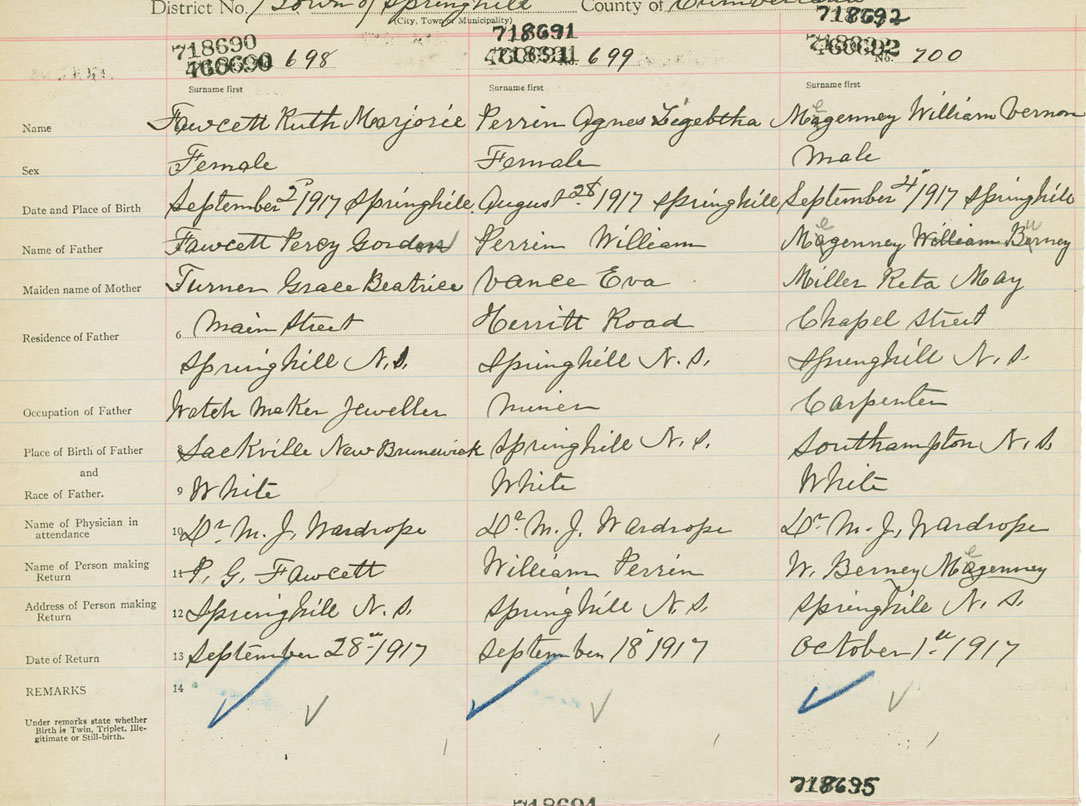 District No. / Town of Springhill County of Cumberland
(City, Town or Municipality)
718690 718691 718692
468690 698 No. 699 No. 700
Surname first Surname first Surname first
Name Fawcett Ruth Marjorie Perrin Agnes Magenney William Vernon
Sex Female Female Male
Date and Place of Birth September 2nd 1917 Springhill August 28 1917 Springhill September 4 1917 Springhill
Name of Father Fawcett Percy Gordon Perrin William Magenney William Berney
Maiden name of Mother Turner Grace Beatrice Vance Eva Miller Reta May
Residence of Father 6 Main Street Herritt Road Chapel Street
Springhill N.S. Springhill N.S. Springhill N.S.
Occupation of Father Watch Maker Jeweller Miner Carpenter
Place of Birth of Father 8 Sackville New Brunswick Springhill N.S. Southampton N.S.
and
Race of Father. 9 White White White
Name of Physician in attendance 10 Dr M. J. Wardrope Dr M. J. Wardrope Dr M. J. Wardrope
Name of Person making Return 11 P. G. Fawcett William Perrin W. Berney Magenney
Address of Person making Return 12 Springhill N.S. Springhill N.S. Springhill N.S.
Date of Return 13 September 28th 1917 September 18 1917 October 1st 1917
REMARKS 14
Under remarks state whether
Birth is Twin, Triplet, Ille-
gitimate or Still-birth.
718695
718694